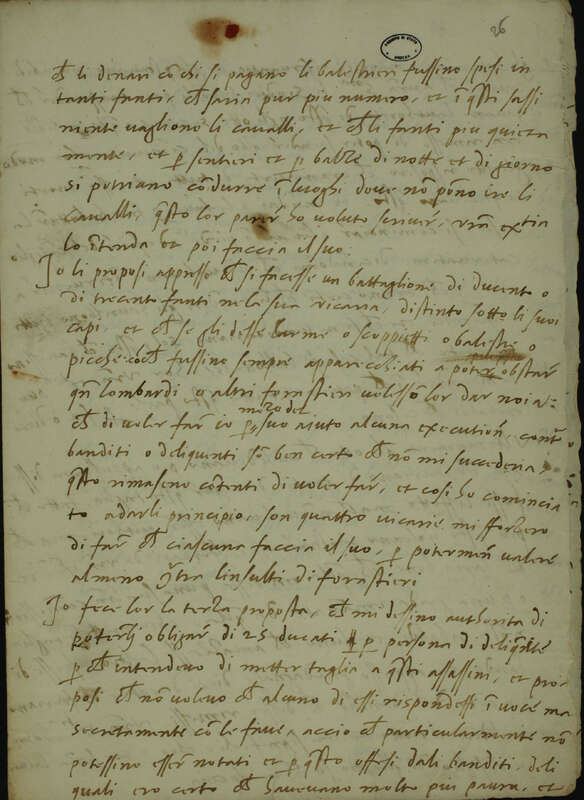 26
ARCHIVIO DI STATO MODENA
che li denari cō chi si pagano li balestrieri fussino spesi in
tanti fanti, che saria pur piu numero, et ī q̄sti sassi
niente vagliono li cavalli, et che li fanti piu quieta
mente, et p sentieri et p balze di notte et di giorno
si potriano cōdurre ī luoghi dove nō pōno ire li
cavalli, q̄sto lor parer ho voluto scriver, vr̄a ex.tia
lo ītenda et poi faccia il suo.
Io li proposi appresso che si facesse un battaglione di ducento o
di trecento fanti ne la sua vicaria, distinto sotto li suoi
capi, et che se gli desse larme o scoppietti o balestre o
picche cō che fussino sempre apparecchiati a poter obstar
qn̄ lombardi o altri forastieri volessō lor dar noia
che di voler far io p mezo del suo aiuto alcuna execution, contr̄
banditi o deliquenti sō ben certo che nō mi succederia,
q̄sto rimaseno cōtenti di voler far, et cosi ho comincia
to a darli principio, son quattro vicarie mi sforzero
di far che ciascuna faccia il suo, p potermen valere
almeno cōtra linsulti di forastieri
Io fece lor la terza proposta, che mi dessino authorita di
poterli obligar di 25 ducati p persona di deliquēte
p che intendevo di metter taglia a q̄sti assassini, et pro
posi che nō volevo che alcuno di essi rispondessi ī voce ma
secretamente cō le fave, accio che particularmente nō
potessino esser notati et p q̄sto offesi dali banditi, deli
quali ero certo che havevano molto piu paura, et